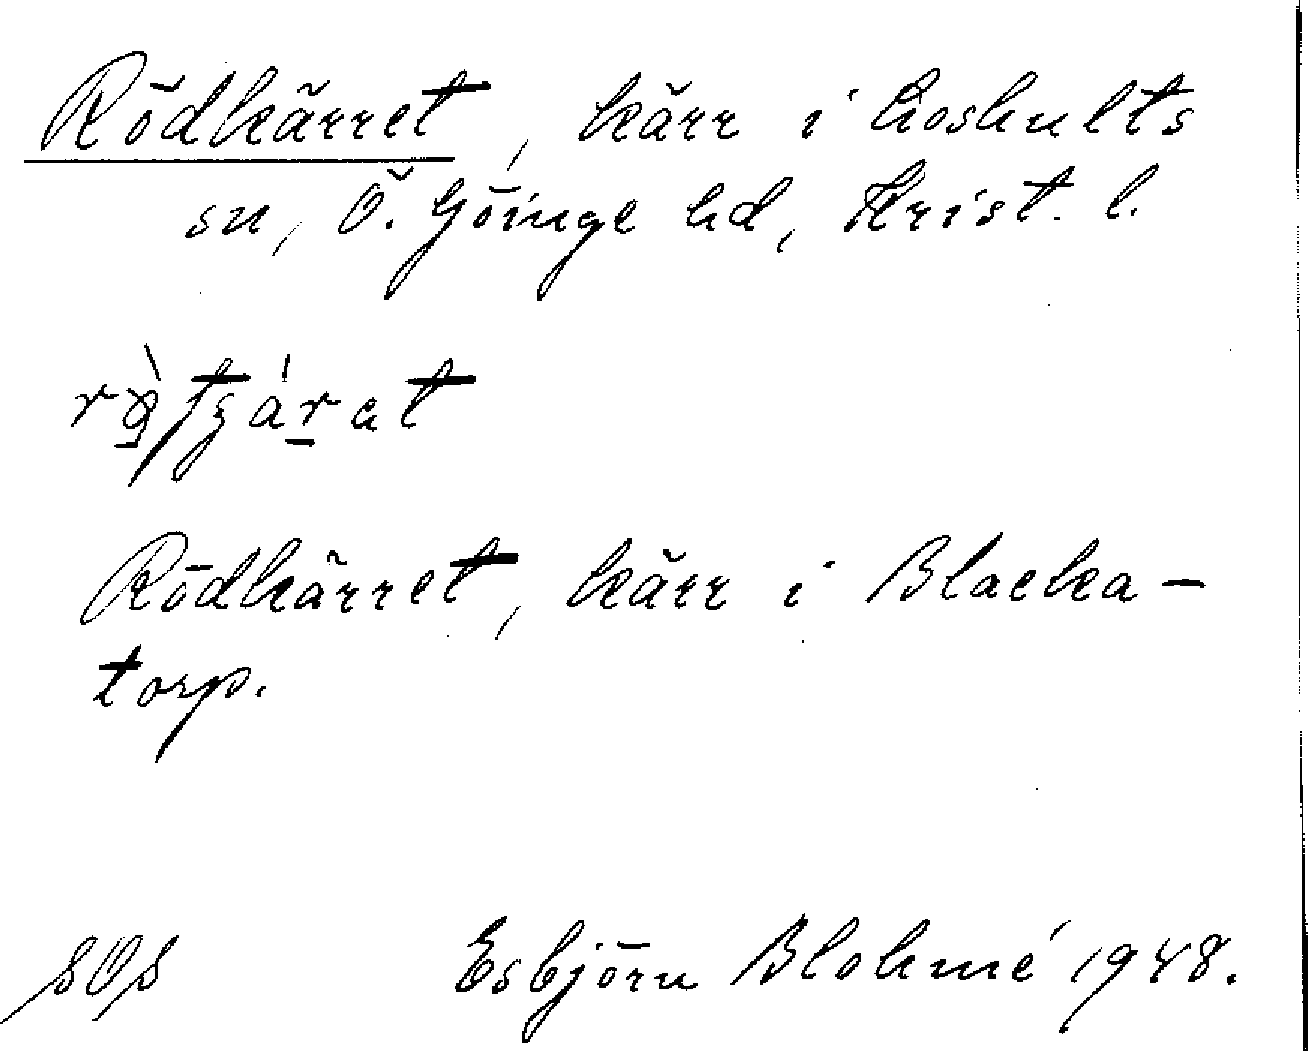 Rödkärret, kärr i Loshults
sn, Ö. Göinge hd, Krist. l.
Rödkärret, kärr i Blacka-
torp.
Esbjörn Blohmé 1948.